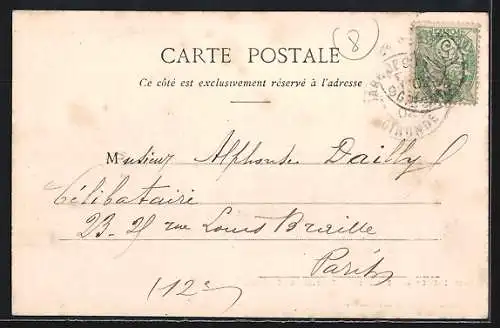 (8)
CARTE POSTALE
Ce côté est exclusivement réservé à l'adresse
GIRONDE
Monsieur Alphonse Dailly
Célibataire
23-25 rue Louis Braille
Paris
(12e